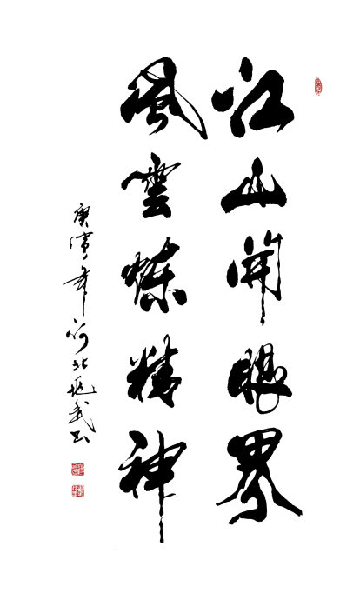 江山開眼界
風雲煉精神
庚寅年河北武书